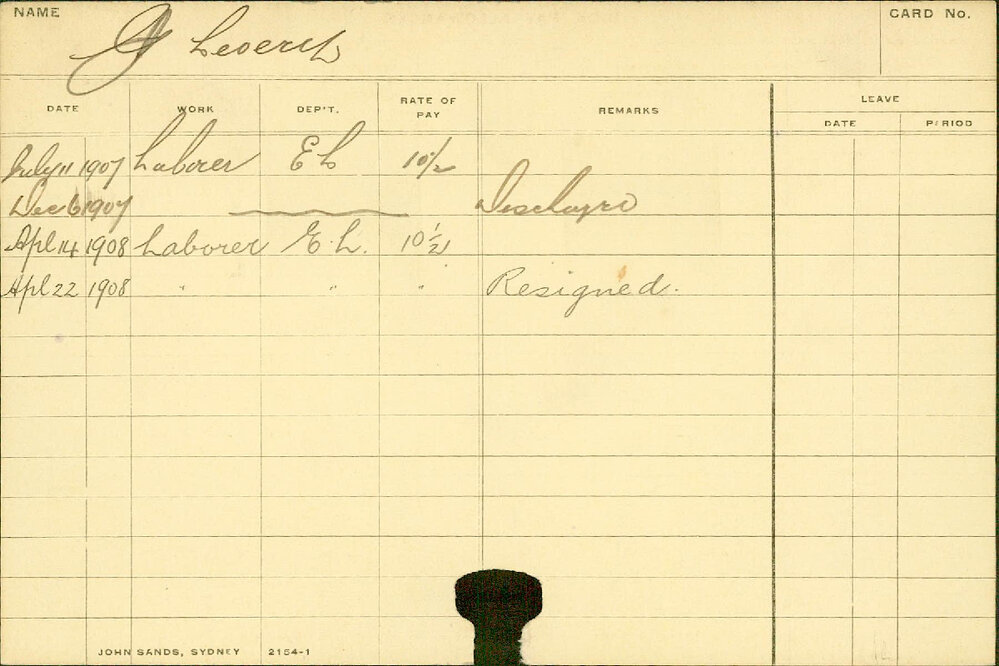 NAME
Levert
CARD No.
DATE WORK DEP'T. RATE OF PAY REMARKS LEAVE
DATE PERIOD
July 11 1907 Laborer E L 10½
Dec 6 1907
Apl 14 1908 Laborer E. L. 10½
Apl 22 1908 " " " Resigned.
JOHN SANDS, SYDNEY 2154-1